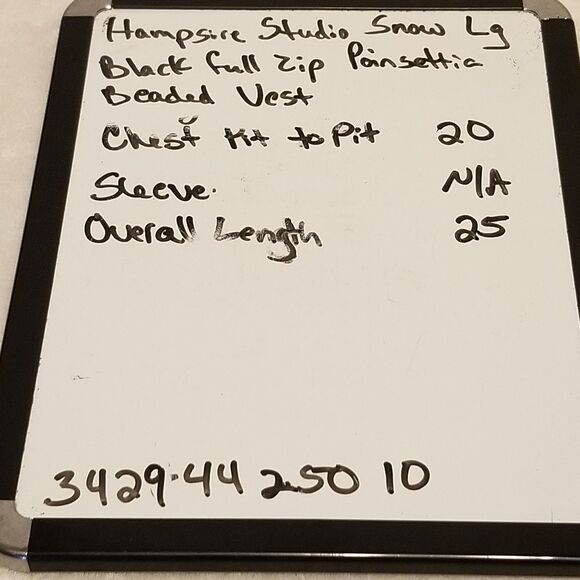 Hampsire Studio Snow Lg
Black full zip Poinsettia
Beaded Vest
Chest Pit to Pit 20
Sleeve. N/A
Overall Length 25
3429-44 2.50 10